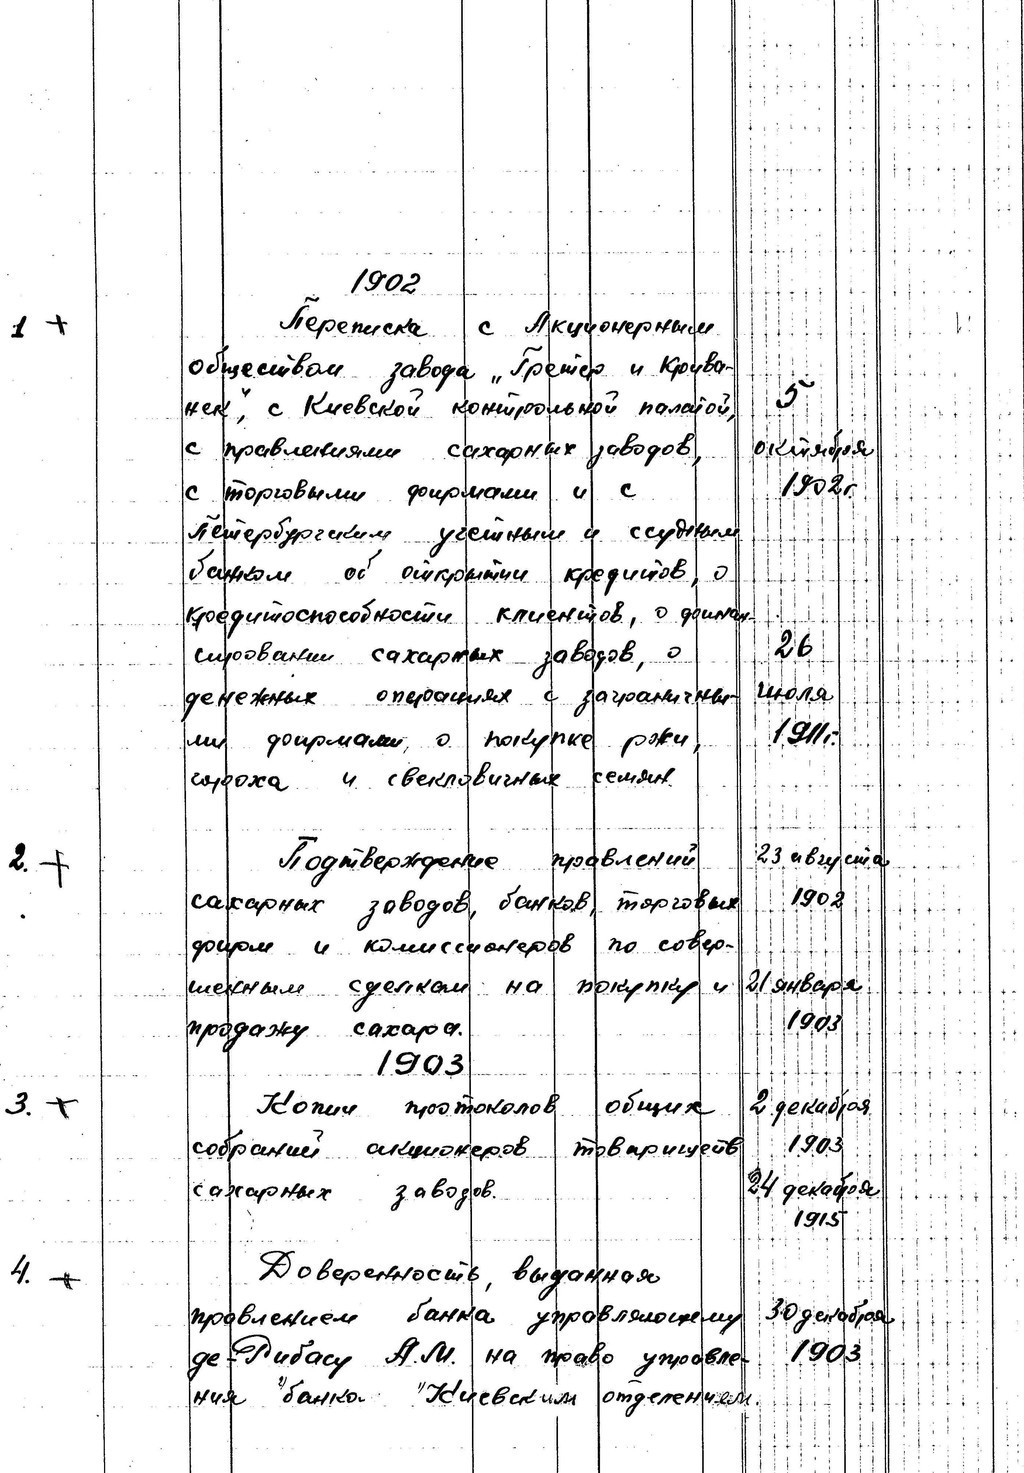 1902
1 + Переписка с Акционерным
обществом завода „Гретер и Крива-
нек", с Киевской контрольной палатой, 5
с правлениями сахарных заводов, октября
с торговыми фирмами и с 1902г.
Петербургским учетным и ссудным
банком об открытии кредитов, о
кредитоспособности клиентов, о финан-
сировании сахарных заводов, о 26
денежных операциях с заграничны- июля
ми фирмами, о покупке ржи, 1911г.
гороха и свекловичных семян
2. + Подтверждение правлений 23 августа
сахарных заводов, банков, торговых 1902
фирм и комиссионеров по совер-
шенным сделкам на покупку и 21 января
продажу сахара. 1903
1903
3. + Копии протоколов общих 2 декабря
собраний акционеров товариществ 1903
сахарных заводов. 24 декабря
1915
4. + Доверенность, выданная
правлением банка управляющему 30 декабря
де-Рибасу А.М. на право управле- 1903
ния "банка "Киевским отделением.